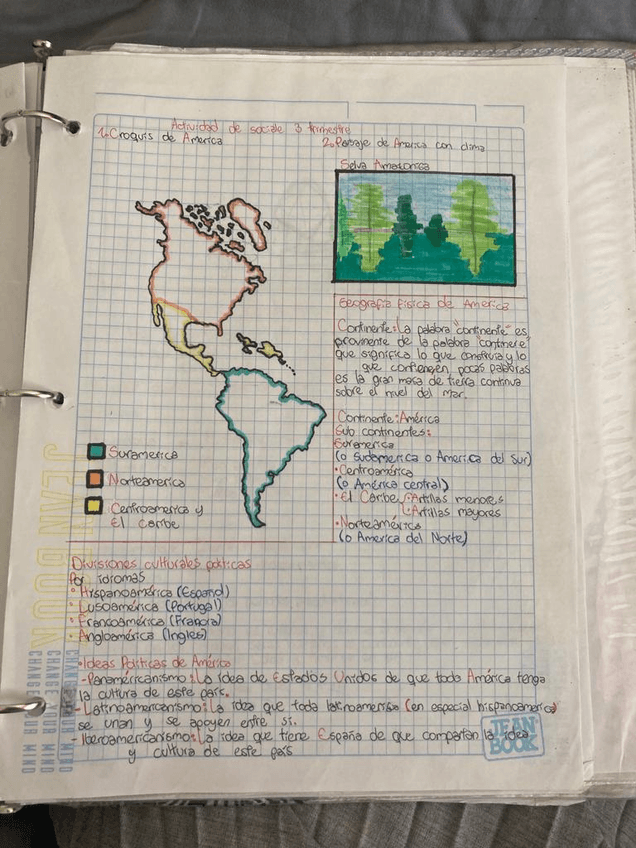 Actividad de sociale 3 trimestre
1. Croquis de America
2. Paisaje de America con clima
Selva Amazonica
Geografia Fisica de America
Continente: La palabra "continente" es
proviniente de la palabra "continere"
que significa lo que construia y lo
que contiengen, pocas palabras
es la gran masa de tierra continua
sobre el nivel del mar.
Continente: América
Sub continentes:
Suramerica
(o Sudamerica o America del Sur)
• Centroamérica
(o América central)
• El Caribe • Artillas menores
• Artillas mayores
• Norteamérica
(o America del Norte)
Suramerica
Norteamerica
Centroamerica y
El Caribe
Divisiones culturales politicas
Por idiomas
• Hispanoamérica (Español)
• Lusoamérica (Portugal)
• Francoamérica (Francia)
• Angloamérica (Ingles)
• Ideas Politicas de América
- Panamericanismo: La idea de Estados Unidos de que toda América tenga
la cultura de este país.
- Latinoamericanismo: La idea que toda latinoamerica (en especial hispanoamerica)
se unan y se apoyen entre si.
- Iberoamericanismo: La idea que tiene España de que compartan la idea
y cultura de este país
JEAN BOOK
CHANGE YOUR MIND
CHANGE YOUR MIND
CHANGE YOUR MIND
JEAN
BOOK